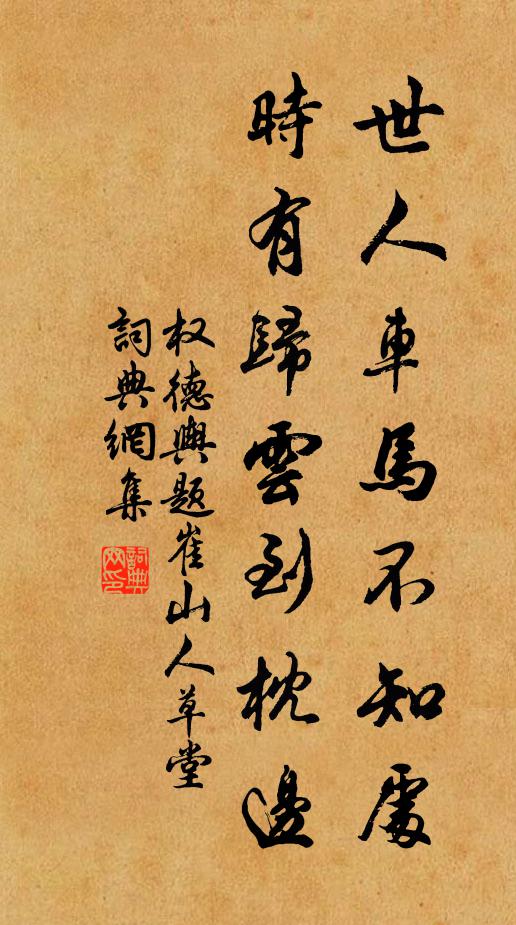 世人車馬不知處
時有歸雲到枕邊
权德輿題崔山人草堂
詞典網集
詞典網印